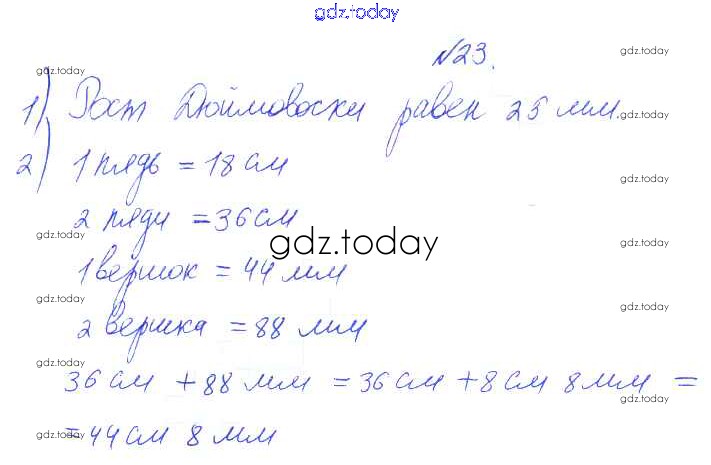 gdz.today
№23.
gdz.today
gdz.today
1) Рост Дюймовочки равен 25 мм.
gdz.today
2) 1 пядь = 18 см
gdz.today
gdz.today
2 пяди = 36 см
gdz.today
gdz.today
gdz.today
1 вершок = 44 мм
gdz.today
gdz.today
2 вершка = 88 мм
gdz.today
36 см + 88 мм = 36 см + 8 см 8 мм =
gdz.today
gdz.today
= 44 см 8 мм